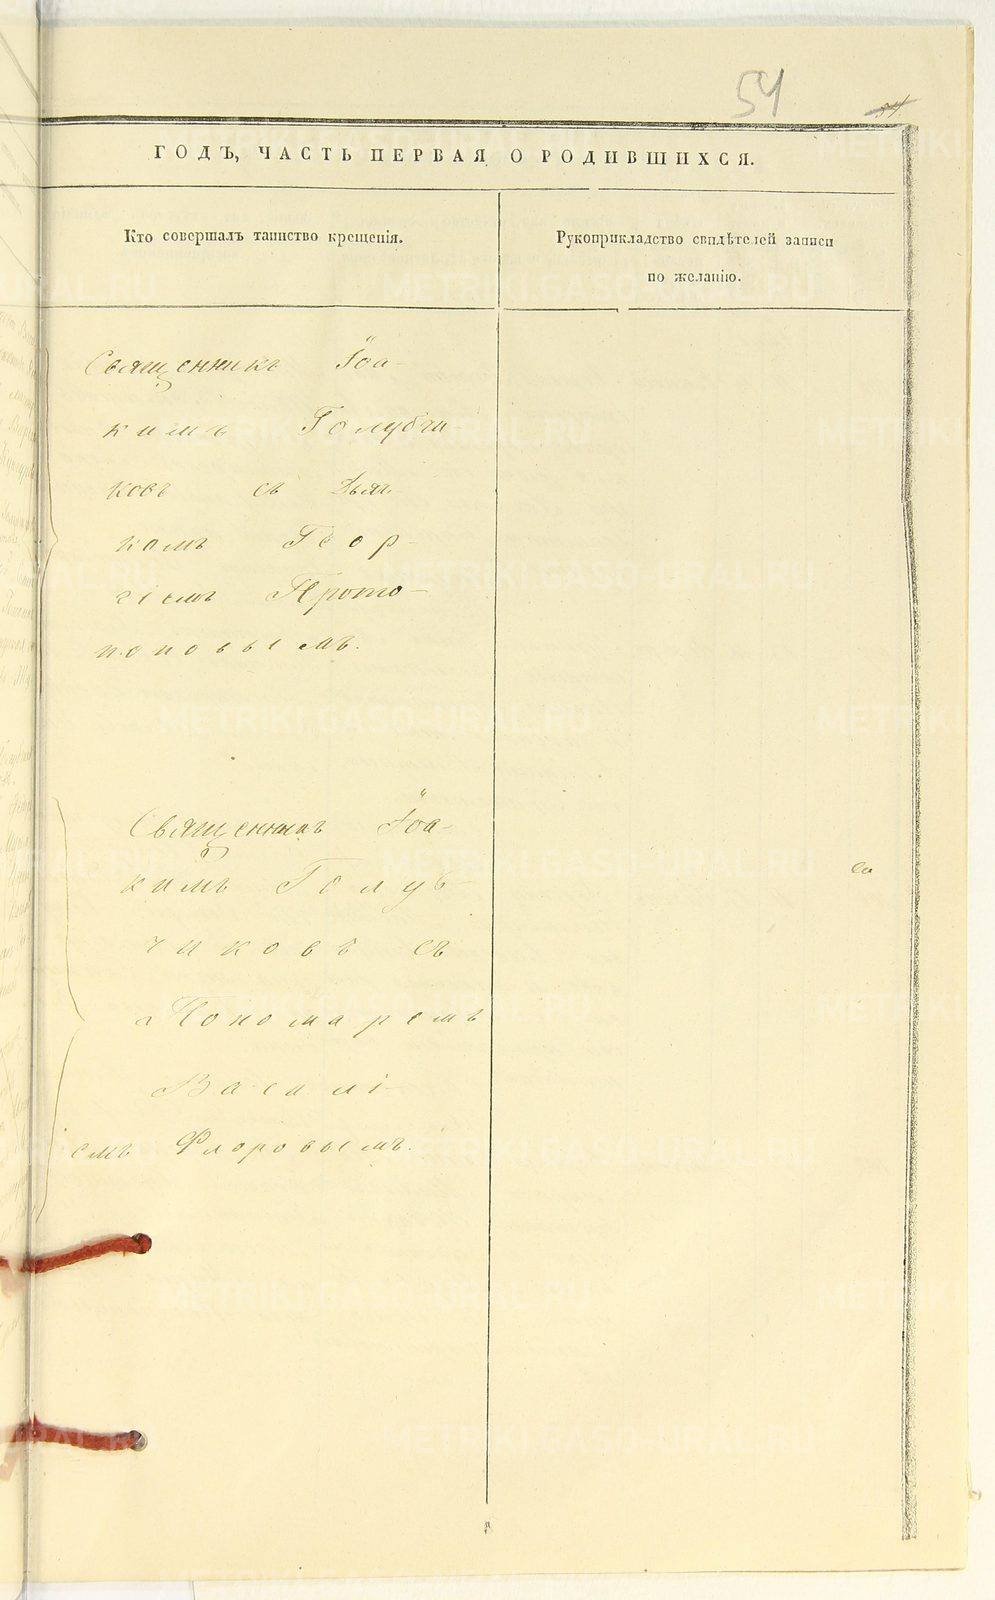 54
54
ГОДЪ, ЧАСТЬ ПЕРВАЯ О РОДИВШИХСЯ.
Кто совершалъ таинство крещенія.
Рукоприкладство свидѣтелей записи
по желанію.
Священникъ Іоа-
кимъ Голубчи
ковъ съ Дьяч
комъ Геор-
гіемъ Прото-
поповымъ.
Священникъ Іоа-
кимъ Голуб-
чиковъ съ
Пономаремъ
Василі-
емъ Флоровымъ.
METRIKI.GASO-URAL.RU